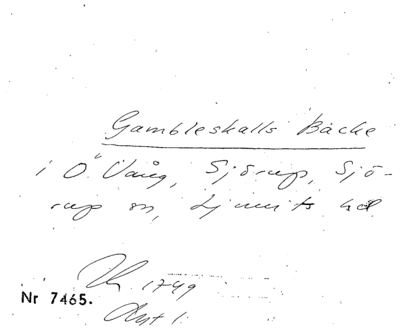 Gambleskalls Bäcke
i Ö Vång, Sjörup, Sjö-
rup sn, Ljunits hd
1749
Nr 7465.
Akt 1.